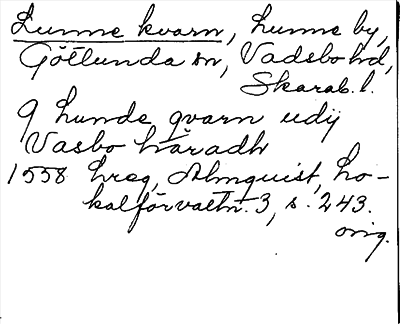 Lunne kvarn, Lunne by,
Götlunda sn, Vadsbo hd,
Skarab. l.
q Lunde qvarn udij
Vasbo häradh
1558 hreg, Almquist, Lo-
kalförvaltn. 3, s. 243.
orig.